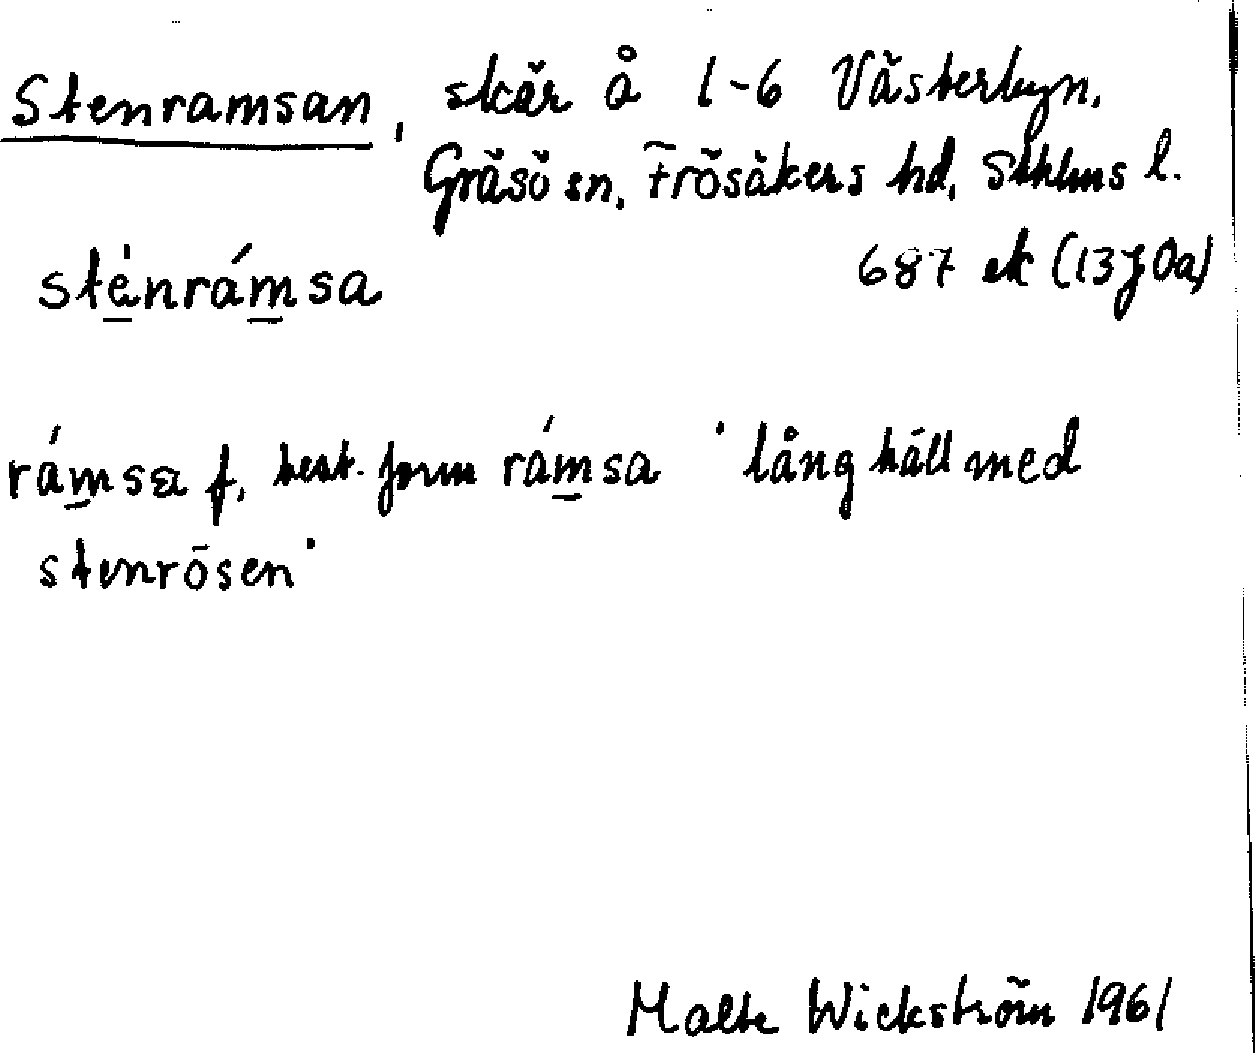 Stenramsan, skär å 1-6 Västerbyn,
Gräsö sn, Frösåkers hd, Sthlms l.
sténrámsa 687 ek (13J0a)
rámsa f, best. form rámsa 'lång häll med
stenrösen'
Malte Wickström 1961